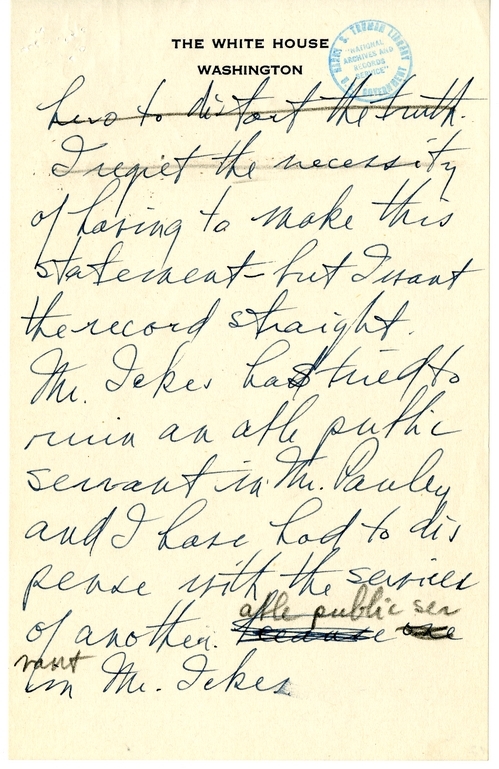 THE WHITE HOUSE
WASHINGTON
HARRY S. TRUMAN LIBRARY
"NATIONAL
ARCHIVES AND
RECORDS
SERVICE"
U.S. GOVERNMENT
hero to distort the truth.
I regret the necessity
of having to make this
statement - but I want
the record straight.
Mr. Ickes had tried to
ruin an able public
servant in Mr. Pauley
and I have had to dis
pense with the services
able public ser
of another. because
vant
in Mr. Ickes